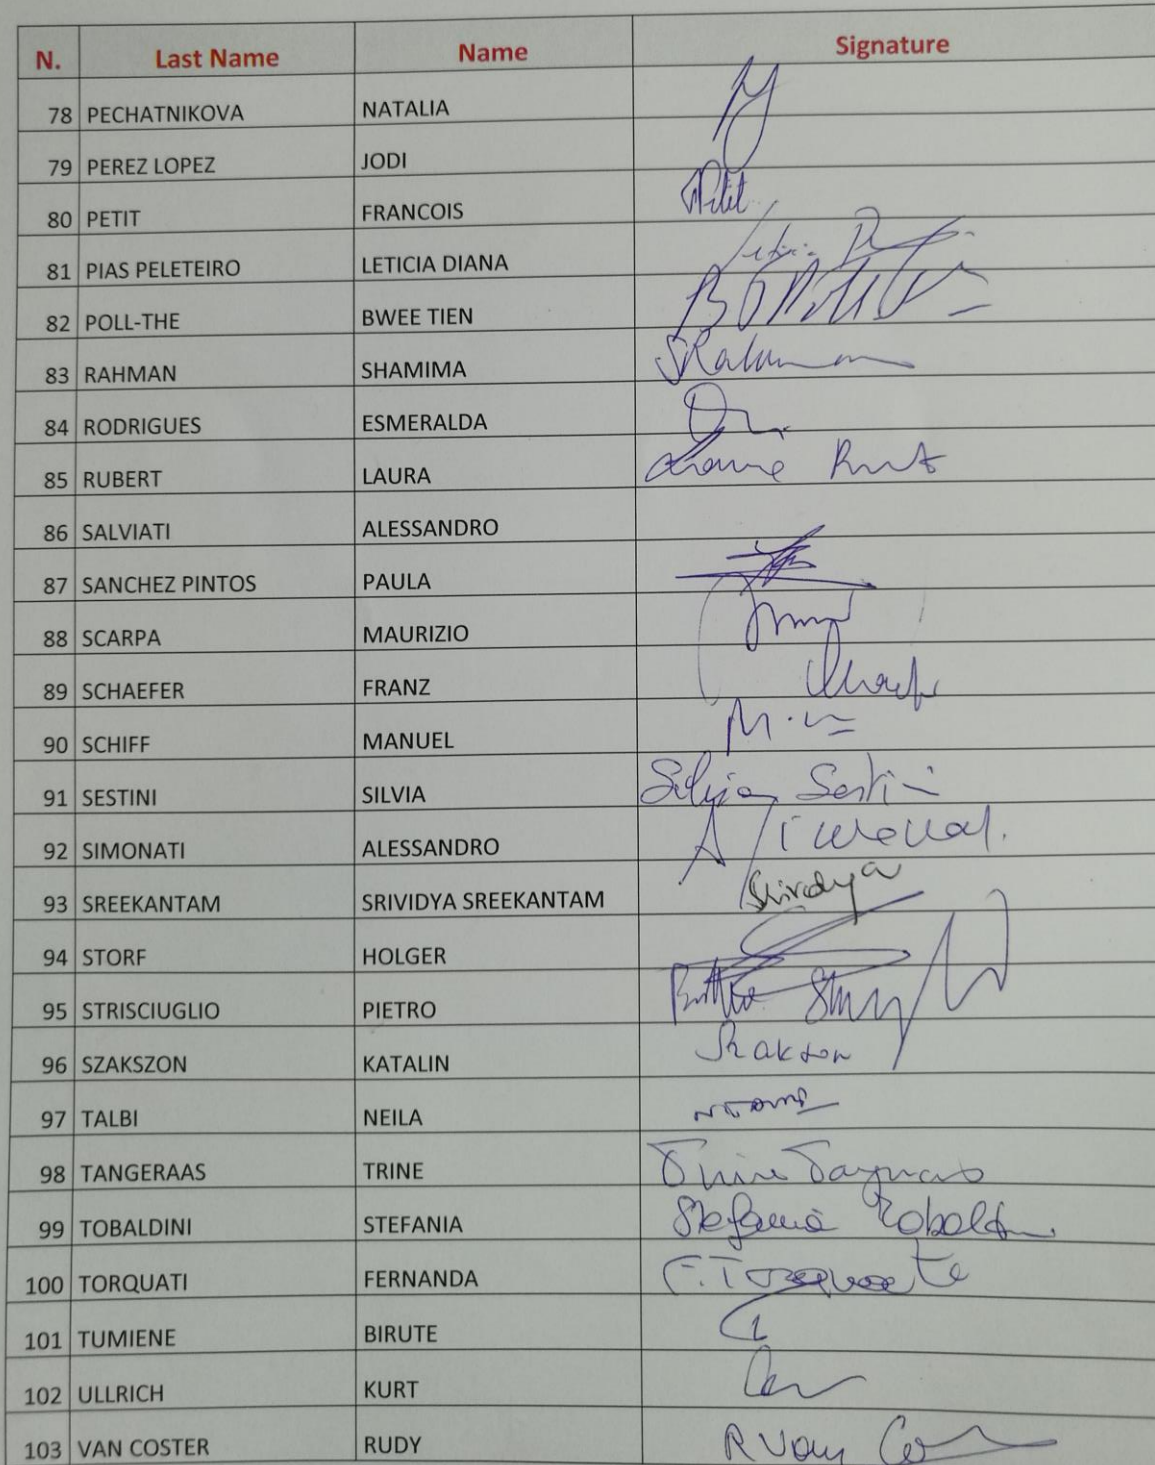 N. Last Name Name Signature
78 PECHATNIKOVA NATALIA
79 PEREZ LOPEZ JODI
80 PETIT FRANCOIS Petit
81 PIAS PELETEIRO LETICIA DIANA Leticia
82 POLL-THE BWEE TIEN
83 RAHMAN SHAMIMA SRahman
84 RODRIGUES ESMERALDA
85 RUBERT LAURA
86 SALVIATI ALESSANDRO
87 SANCHEZ PINTOS PAULA
88 SCARPA MAURIZIO
89 SCHAEFER FRANZ
90 SCHIFF MANUEL
91 SESTINI SILVIA Silvia Sestini
92 SIMONATI ALESSANDRO
93 SREEKANTAM SRIVIDYA SREEKANTAM Srividya
94 STORF HOLGER
95 STRISCIUGLIO PIETRO
96 SZAKSZON KATALIN
97 TALBI NEILA
98 TANGERAAS TRINE Trine
99 TOBALDINI STEFANIA Stefania Tobaldini
100 TORQUATI FERNANDA F. Torquati
101 TUMIENE BIRUTE
102 ULLRICH KURT
103 VAN COSTER RUDY R Van